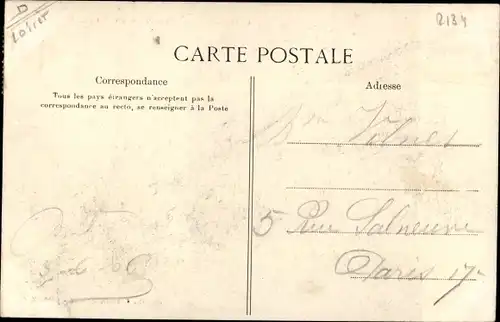 D
Loiret
2134
CARTE POSTALE
Correspondance
Adresse
Tous les pays étrangers n'acceptent pas la
correspondance au recto, se renseigner à la Poste
5 Rue Salneuve
Paris 17e